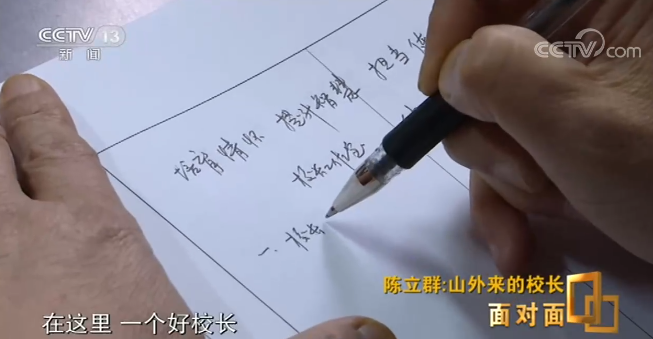 CCTV 13
新闻
CCTV.com
培育情怀 提升智慧 担当使
校长工作室
一、校长
陈立群:山外来的校长
面对面
在这里 一个好校长